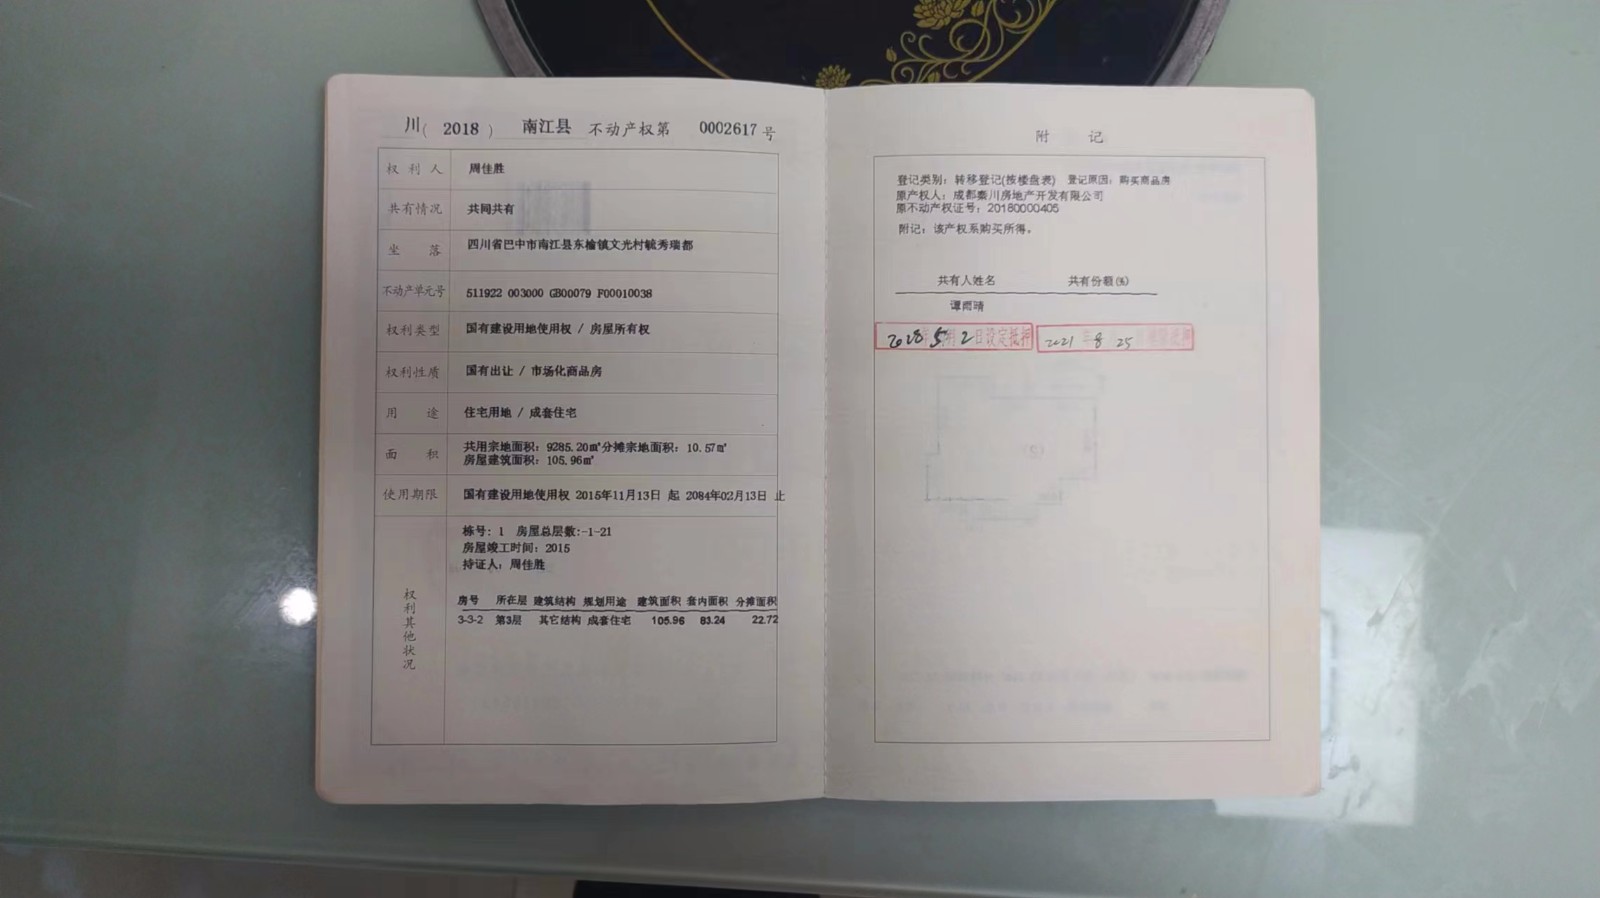 川( 2018 ) 南江县 不动产权第 0002617 号
权利人 周佳胜
共有情况 共同共有
坐落 四川省巴中市南江县东榆镇文光村毓秀瑞都
不动产单元号 511922 003000 GB00079 F00010038
权利类型 国有建设用地使用权 / 房屋所有权
权利性质 国有出让 / 市场化商品房
用途 住宅用地 / 成套住宅
面积 共用宗地面积：9285.20㎡分摊宗地面积：10.57㎡
房屋建筑面积：105.96㎡
使用期限 国有建设用地使用权 2015年11月13日 起 2084年02月13日 止
权利其他状况
栋号：1 房屋总层数:-1-21
房屋竣工时间：2015
持证人：周佳胜
房号 所在层 建筑结构 规划用途 建筑面积 套内面积 分摊面积
3-3-2 第3层 其它结构 成套住宅 105.96 83.24 22.72
附记
登记类别：转移登记(按楼盘表) 登记原因：购买商品房
原产权人：成都秦川房地产开发有限公司
原不动产权证号：20180000405
附记：该产权系购买所得。
共有人姓名 共有份额(%)
谭雨晴
5月2日设定抵押 2021年8 25